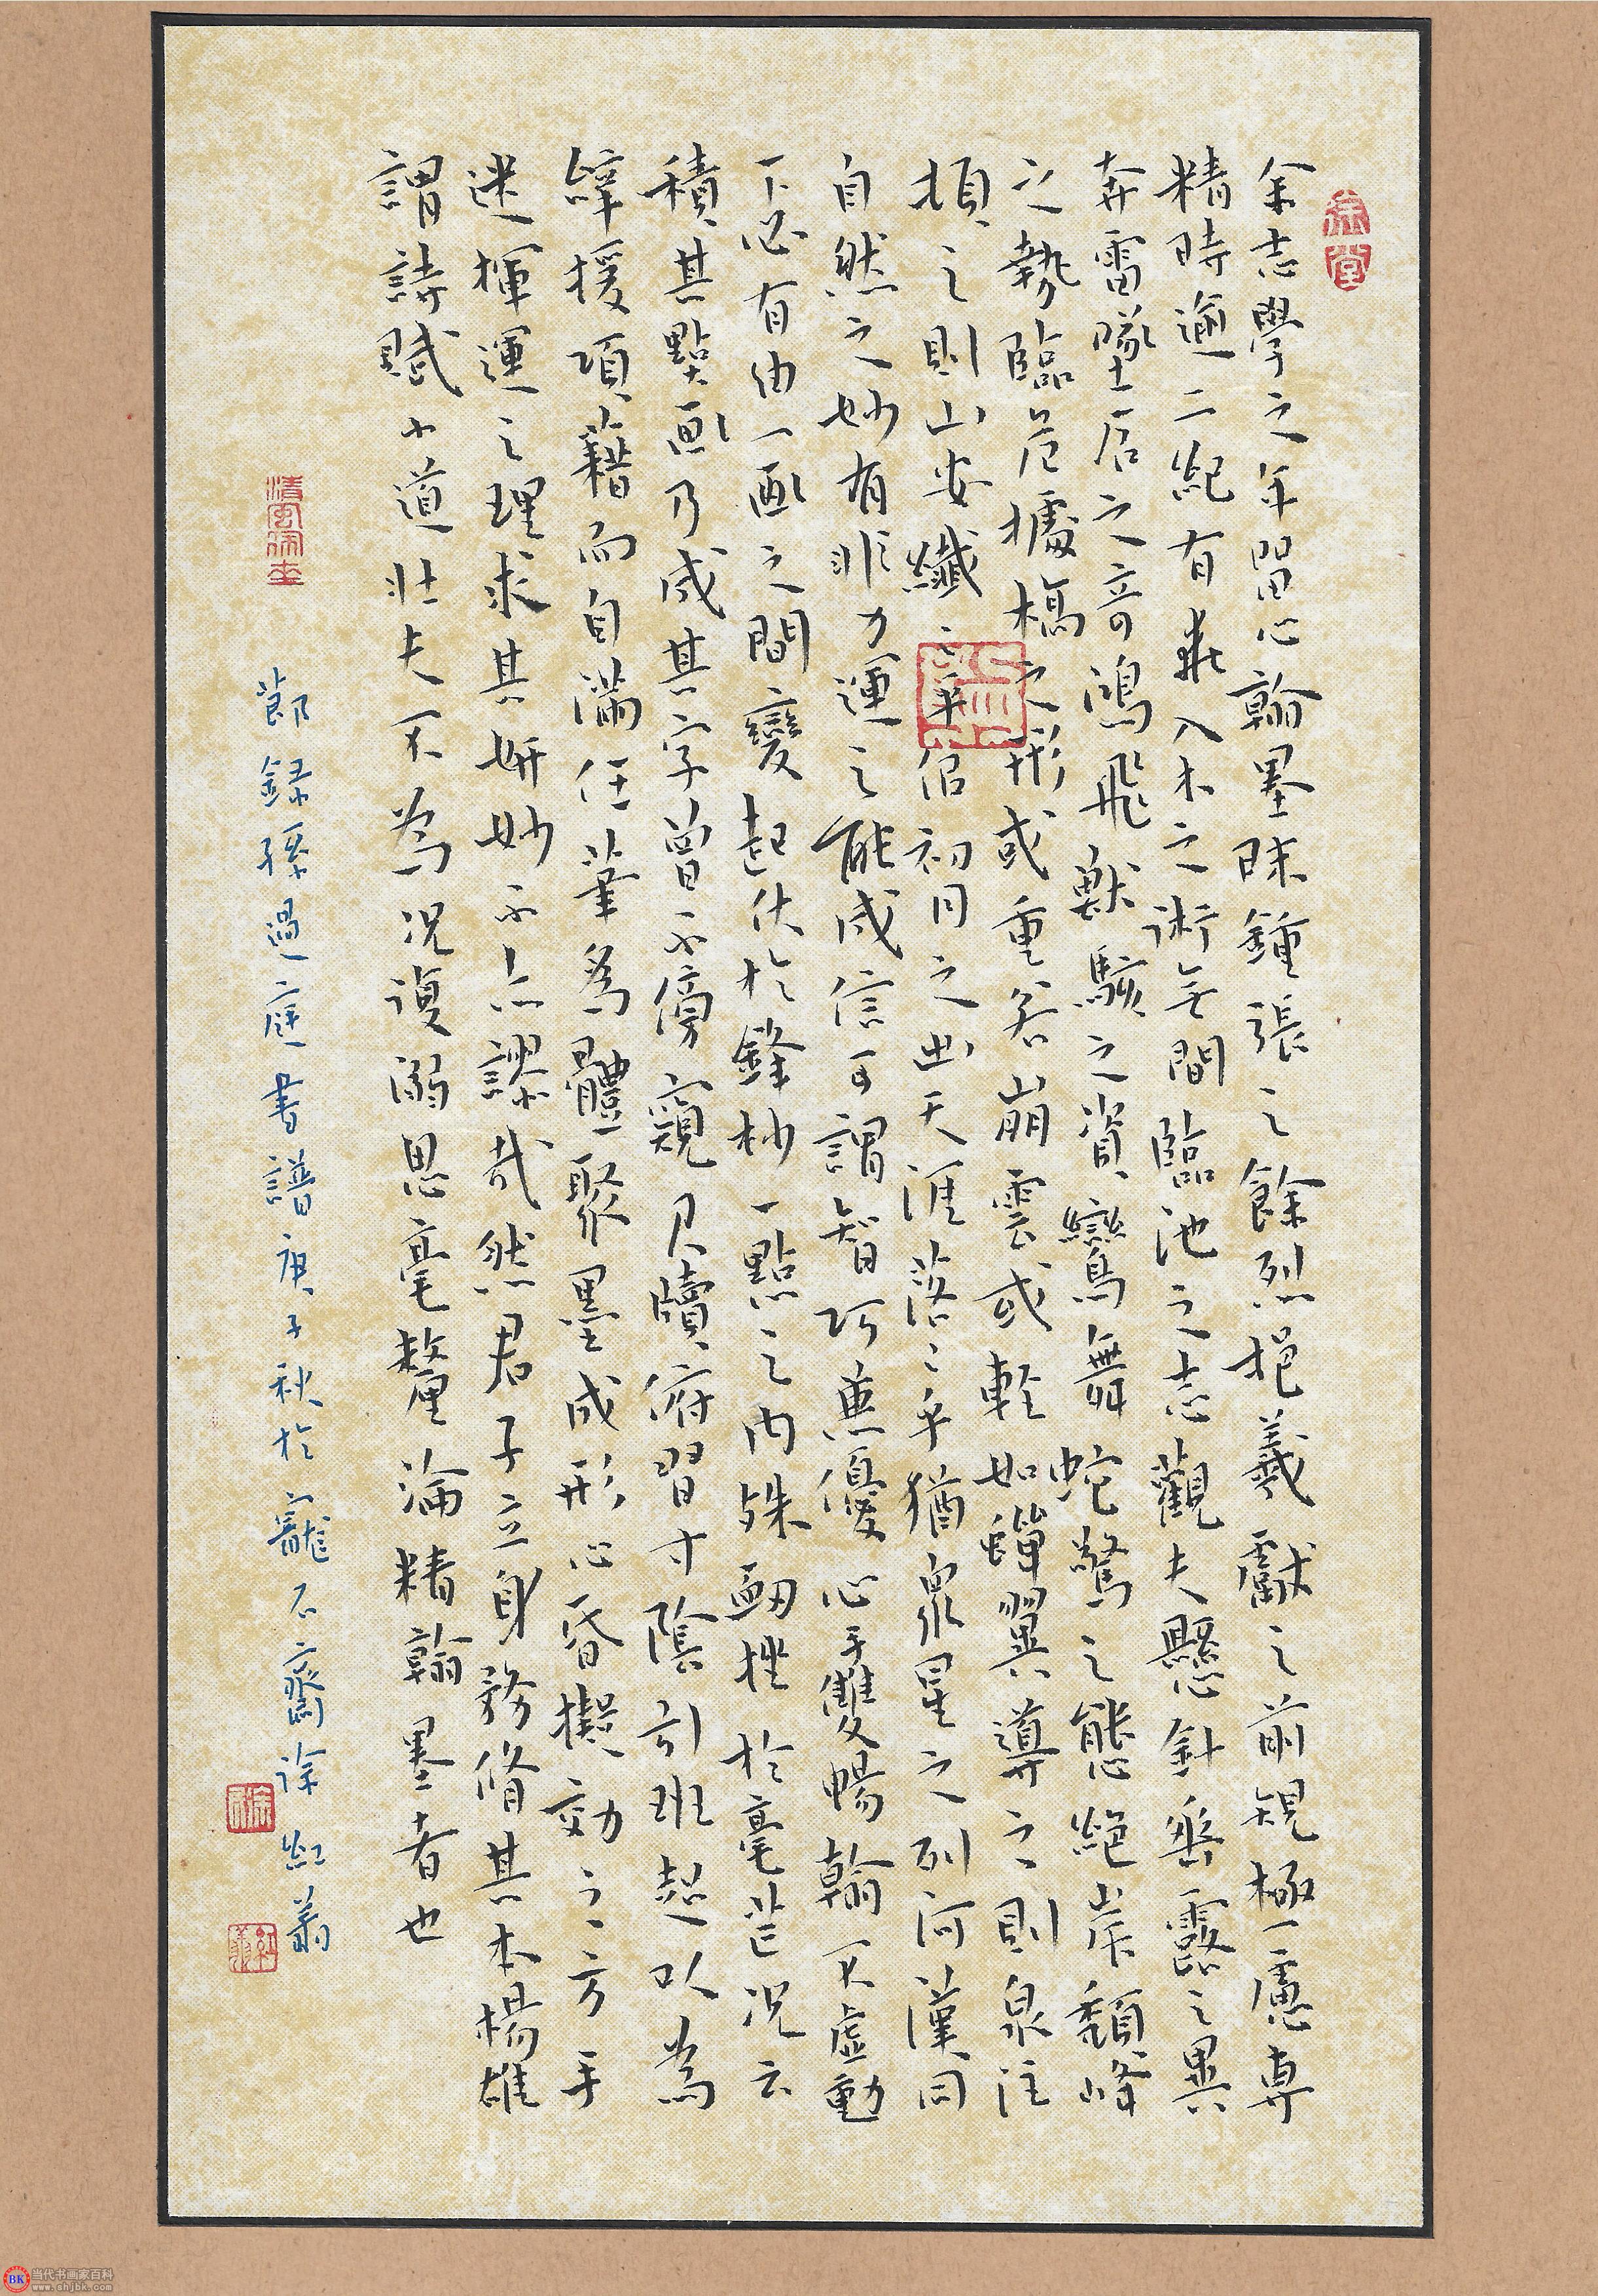 余志學之年留心翰墨味鍾張之餘烈挹羲獻之前規極慮專
精時逾二紀有乖入木之術無間臨池之志觀夫懸針垂露之異
奔雷墜石之奇鴻飛獸駭之資鸞舞蛇驚之態絕岸頹峰
之勢臨危據槁之形或重若崩雲或輕如蟬翼導之則泉注
頓之則山安纖纖乎似初月之出天涯落落乎猶眾星之列河漢同
自然之妙有非力運之能成信可謂智巧兼優心手雙暢翰不虛動
下必有由一畫之間變起伏於鋒杪一點之內殊衄挫於毫芒況云
積其點畫乃成其字曾不傍窺尺牘俯習寸陰引班超以為
辭援項籍而自滿任筆為體聚墨成形心昏擬効之方手
迷揮運之理求其妍妙不亦謬哉然君子立身務脩其本楊雄
謂詩賦小道壯夫不為況復溺思毫釐淪精翰墨者也
節錄孫過庭書譜庚子秋於龍石齋徐紅萧
當代书画家百科
www.shjbk.com
BK